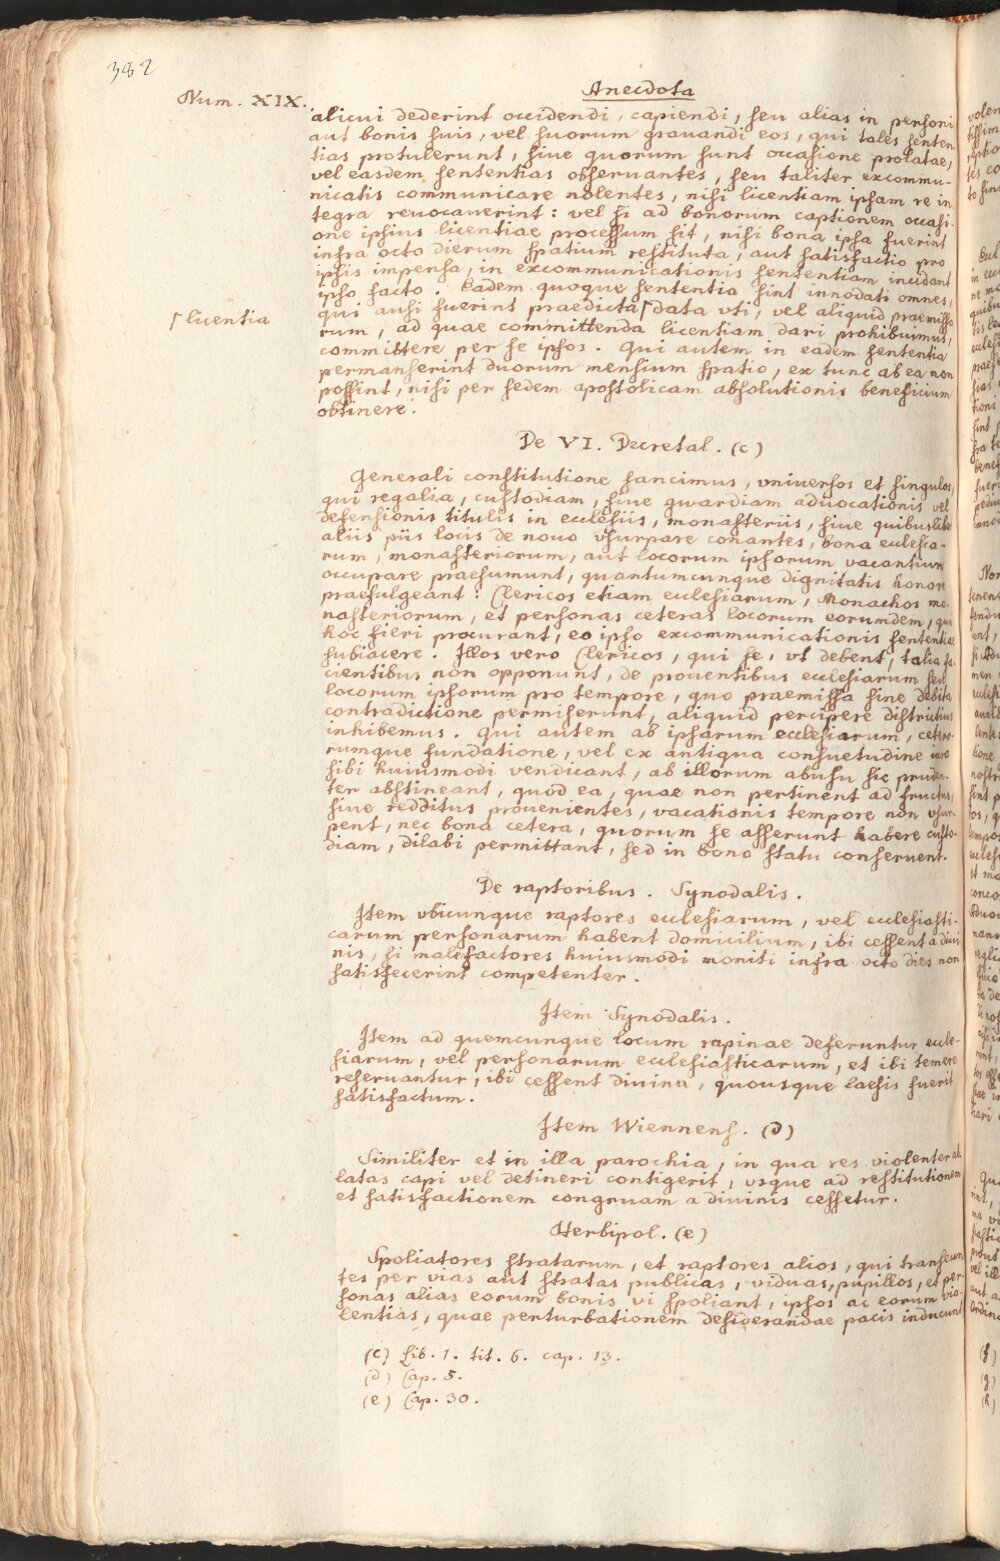 382
Anecdota
Num. XIX.
alicui dederint occidendi, capiendi, seu alias in personis
aut bonis suis, vel suorum grauandi eos, qui tales senten
tias protulerunt, siue quorum sunt occasione prolatae,
vel easdem sententias obseruantes, seu taliter excommu-
nicatis communicare nolentes, nisi licentiam ipsam re in
tegra reuocauerint: vel si ad bonorum captionem occasi-
one ipsius licentiae processum sit, nisi bona ipsa fuerint
infra octo dierum spatium restituta, aut satisfactio pro
ipsis impensa, in excommunicationis sententiam incidant
ipso facto. Eadem quoque sententia sint innodati omnes,
qui ausi fuerint praedicta ⌈ data vti, vel aliquid praemisso
⌈ licentia
rum, ad quae committenda licentiam dari prohibuimus,
committere per se ipsos. Qui autem in eadem sententia
permanserint duorum mensium spatio, ex tunc ab ea non
possint, nisi per sedem apostolicam absolutionis beneficium
obtinere.
De VI. Decretal. (c)
Generali constitutione sancimus, vniuersos et singulos,
qui regalia, custodiam, siue gwardiam aduocationis vel
defensionis titulis in ecclesiis, monasteriis, siue quibuslibet
aliis piis locis de nouo vsurpare conantes, bona ecclesia-
rum, monasteriorum, aut locorum ipsorum vacantium
occupare praesumunt, quantumcunque dignitatis honore
praefulgeant: Clericos etiam ecclesiarum, Monachos mo-
nasteriorum, et personas ceteras locorum eorumdem, qui
hoc fieri procurant, eo ipso excommunicationis sententiae
subiacere. Illos vero Clericos, qui se, vt debent, talia fa-
cientibus non opponunt, de prouentibus ecclesiarum seu
locorum ipsorum pro tempore, quo praemissa sine debita
contradictione permiserunt, aliquid percipere districtius
inhibemus. Qui autem ab ipsarum ecclesiarum, cetero-
rumque fundatione, vel ex antiqua consuetudine iura
sibi huiusmodi vendicant, ab illorum abusu sic pruden-
ter abstineant, quod ea, quae non pertinent ad fructus,
siue redditus prouenientes, vacationis tempore non vsur-
pent, nec bona cetera, quorum se asserunt habere custo-
diam, dilabi permittant, sed in bono statu conseruent.
De raptoribus. Synodalis.
Item vbicunque raptores ecclesiarum, vel ecclesiasti-
carum personarum habent domicilium, ibi cessent a diui
nis, si malefactores huiusmodi moniti infra octo dies non
satisfecerint competenter.
Item Synodalis.
Item ad quemcunque locum rapinae deferuntur eccle-
siarum, vel personarum ecclesiasticarum, et ibi temere
reseruantur, ibi cessent diuina, quousque laesis fuerit
satisfactum.
Item Wiennens. (d)
Similiter et in illa parochia, in qua res violenter ab
latas capi vel detineri contigerit, vsque ad restitutionem
et satisfactionem congruam a diuinis cessetur.
Herbipol. (e)
Spoliatores stratarum, et raptores alios, qui transeun
tes per vias aut stratas publicas, viduas, pupillos, et per-
sonas alias eorum bonis vi spoliant, ipsos ac eorum vio-
lentias, quae perturbationem desiderandae pacis inducunt
(c) Lib. 1. tit. 6. cap. 13.
(d) Cap. 5.
(e) Cap. 30.